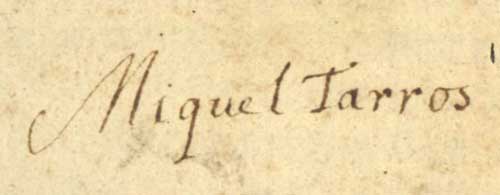 Miquel Tarros